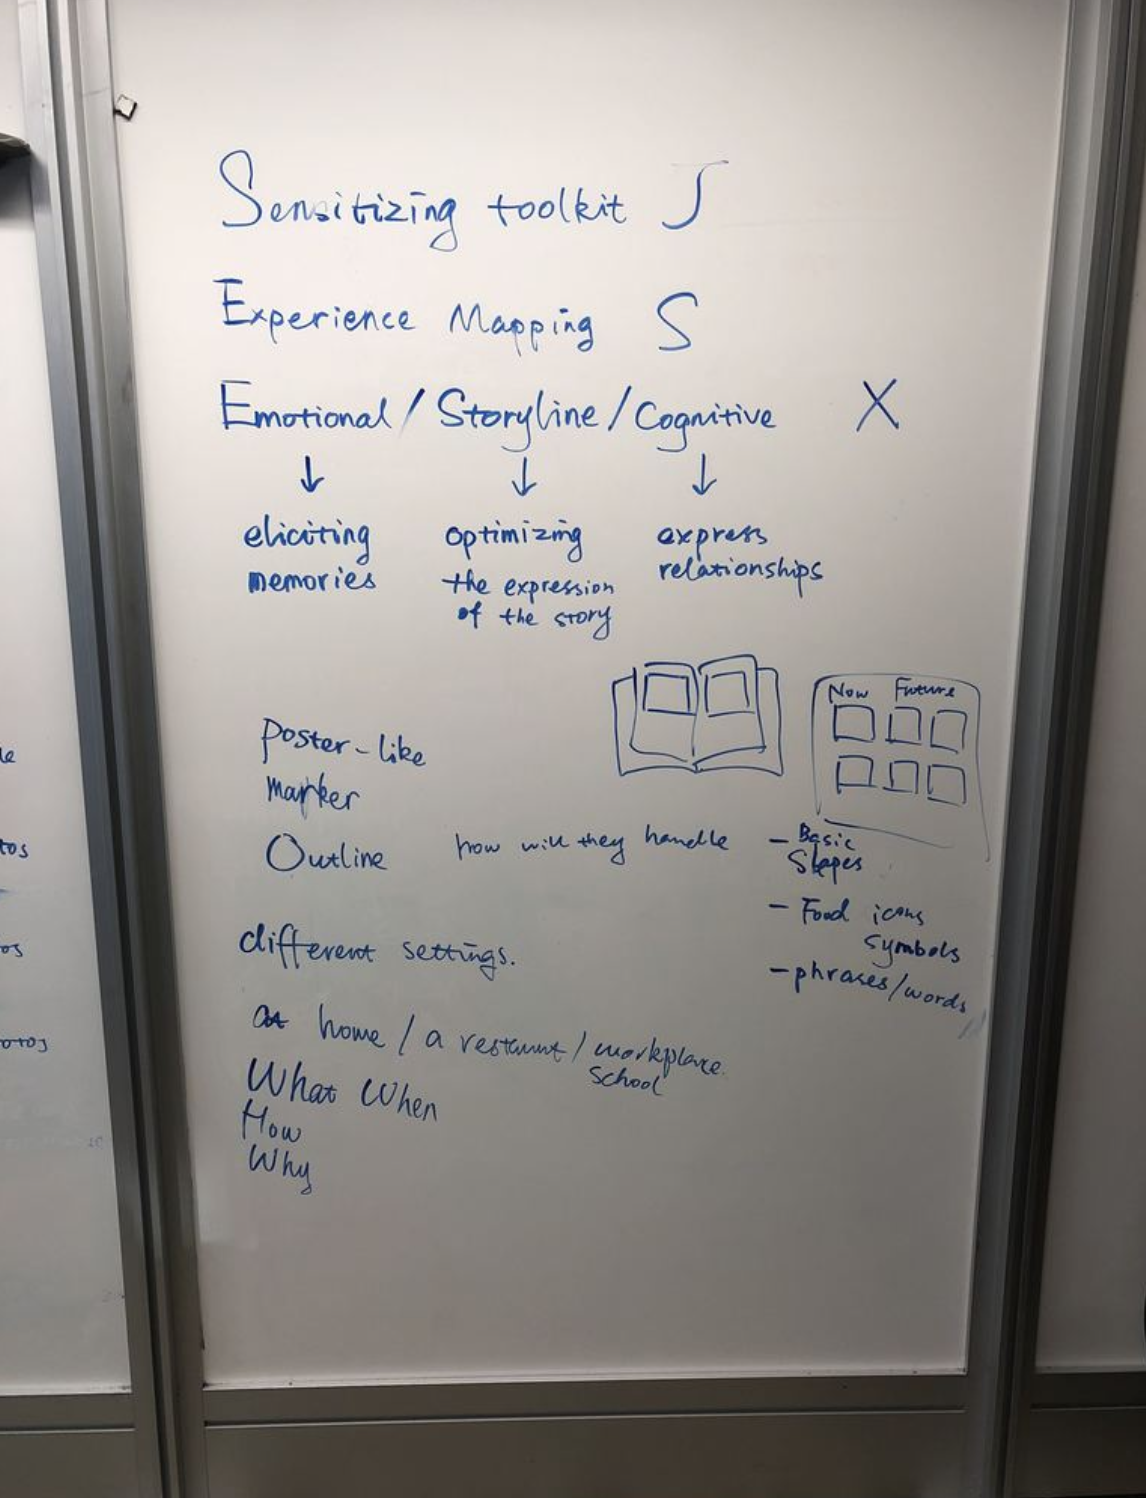 Sensitizing toolkit J
Experience Mapping S
Emotional / Storyline / Cognitive X
↓ ↓ ↓
eliciting
memories
optimizing
the expression
of the story
express
relationships
Now Future
Poster-like
marker
Outline how will they handle
- Basic
Shapes
- Food icons
symbols
- phrases/words
different settings.
at home / a restaurant / workplace
School
What When
How
Why
le
tos
os